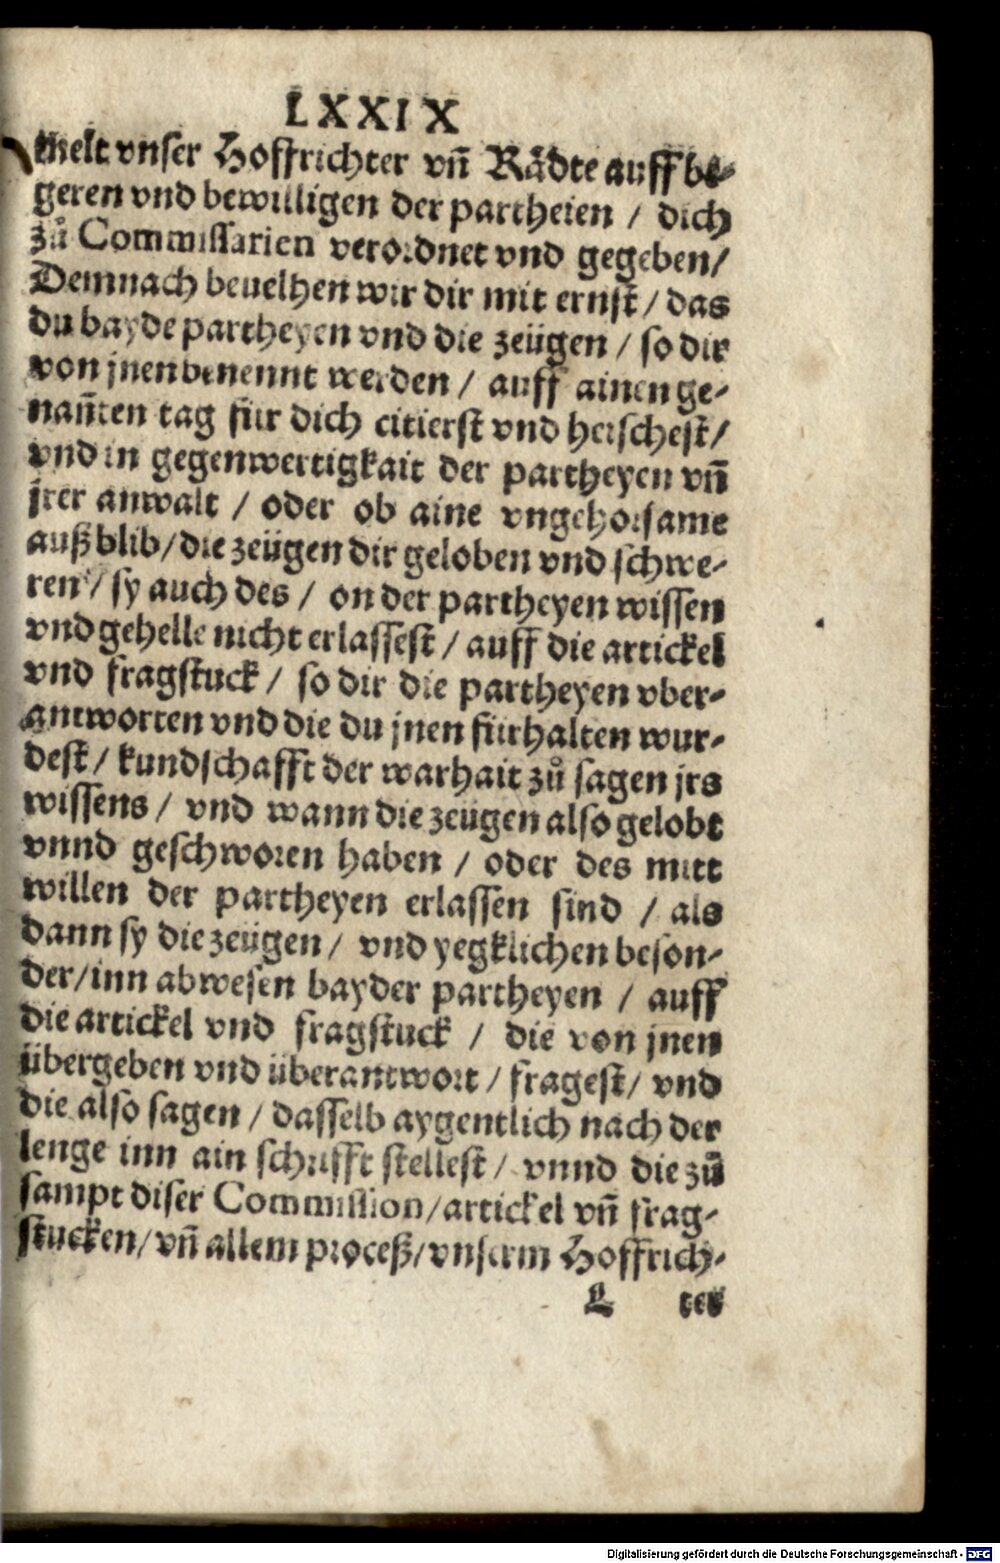 LXXIX
melt vnser Hoffrichter vñ Rådte auff be-
geren vnd bewilligen der partheien / dich
zů Commissarien verordnet vnd gegeben /
Demnach beuelhen wir dir mit ernst / das
du bayde partheyen vnd die zeügen / so dir
von jnen benennt werden / auff ainen ge-
nañten tag für dich citierst vnd heischest /
vnd in gegenwertigkait der partheyen vñ
jrer anwalt / oder ob aine vngehorsame
außblib / die zeügen dir geloben vnd schwe-
ren / sy auch des / on der partheyen wissen
vnd gehelle nicht erlassest / auff die artickel
vnd fragstuck / so dir die partheyen vber-
antworten vnd die du jnen fürhalten wur-
dest / kundschafft der warhait zů sagen jrs
wissens / vnd wann die zeügen also gelobt
vnnd geschworen haben / oder des mitt
willen der partheyen erlassen sind / als
dann sy die zeügen / vnd yegklichen beson-
der / inn abwesen bayder partheyen / auff
die artickel vnd fragstuck / die von jnen
übergeben vnd überantwort / fragest / vnd
die also sagen / dasselb aygentlich nach der
lenge inn ain schrifft stellest / vnnd die zů
sampt diser Commission / artickel vñ frag-
stucken / vñ allem proceß / vnserm Hoffrich-
L ter
Digitalisierung gefördert durch die Deutsche Forschungsgemeinschaft - DFG